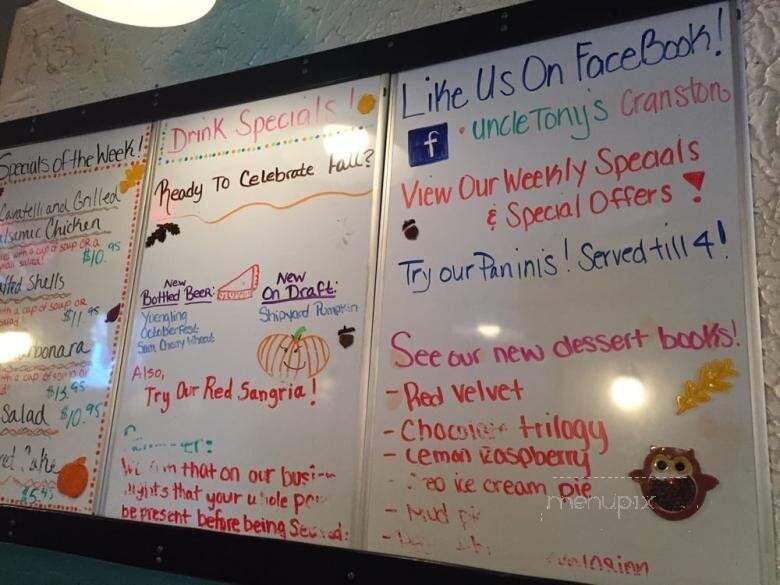 Specials of the Week!
Cavatelli and Grilled
Balsamic Chicken
with a cup of soup or a
salad!
$10.95
Shells
with a cup of soup or
$11.95
Carbonara
with a cup of soup or
$13.95
Salad $10.95
$5.95
Drink Specials!
Ready To Celebrate Fall?
New
Bottled Beer:
Yuengling
Octoberfest
Sam Cherry Wheat
New
On Draft:
Shipyard Pumpkin
Also,
Try Our Red Sangria!
that on our busi
nights that your whole
be present before being Seated.
Like Us On FaceBook!
f
• Uncle Tony's Cranston
View Our Weekly Specials
& Special Offers!
Try our Paninis! Served till 4!
See our new dessert books!
- Red Velvet
- Chocolate trilogy
- Lemon Raspberry
ice cream pie
- Mud pie
menupix